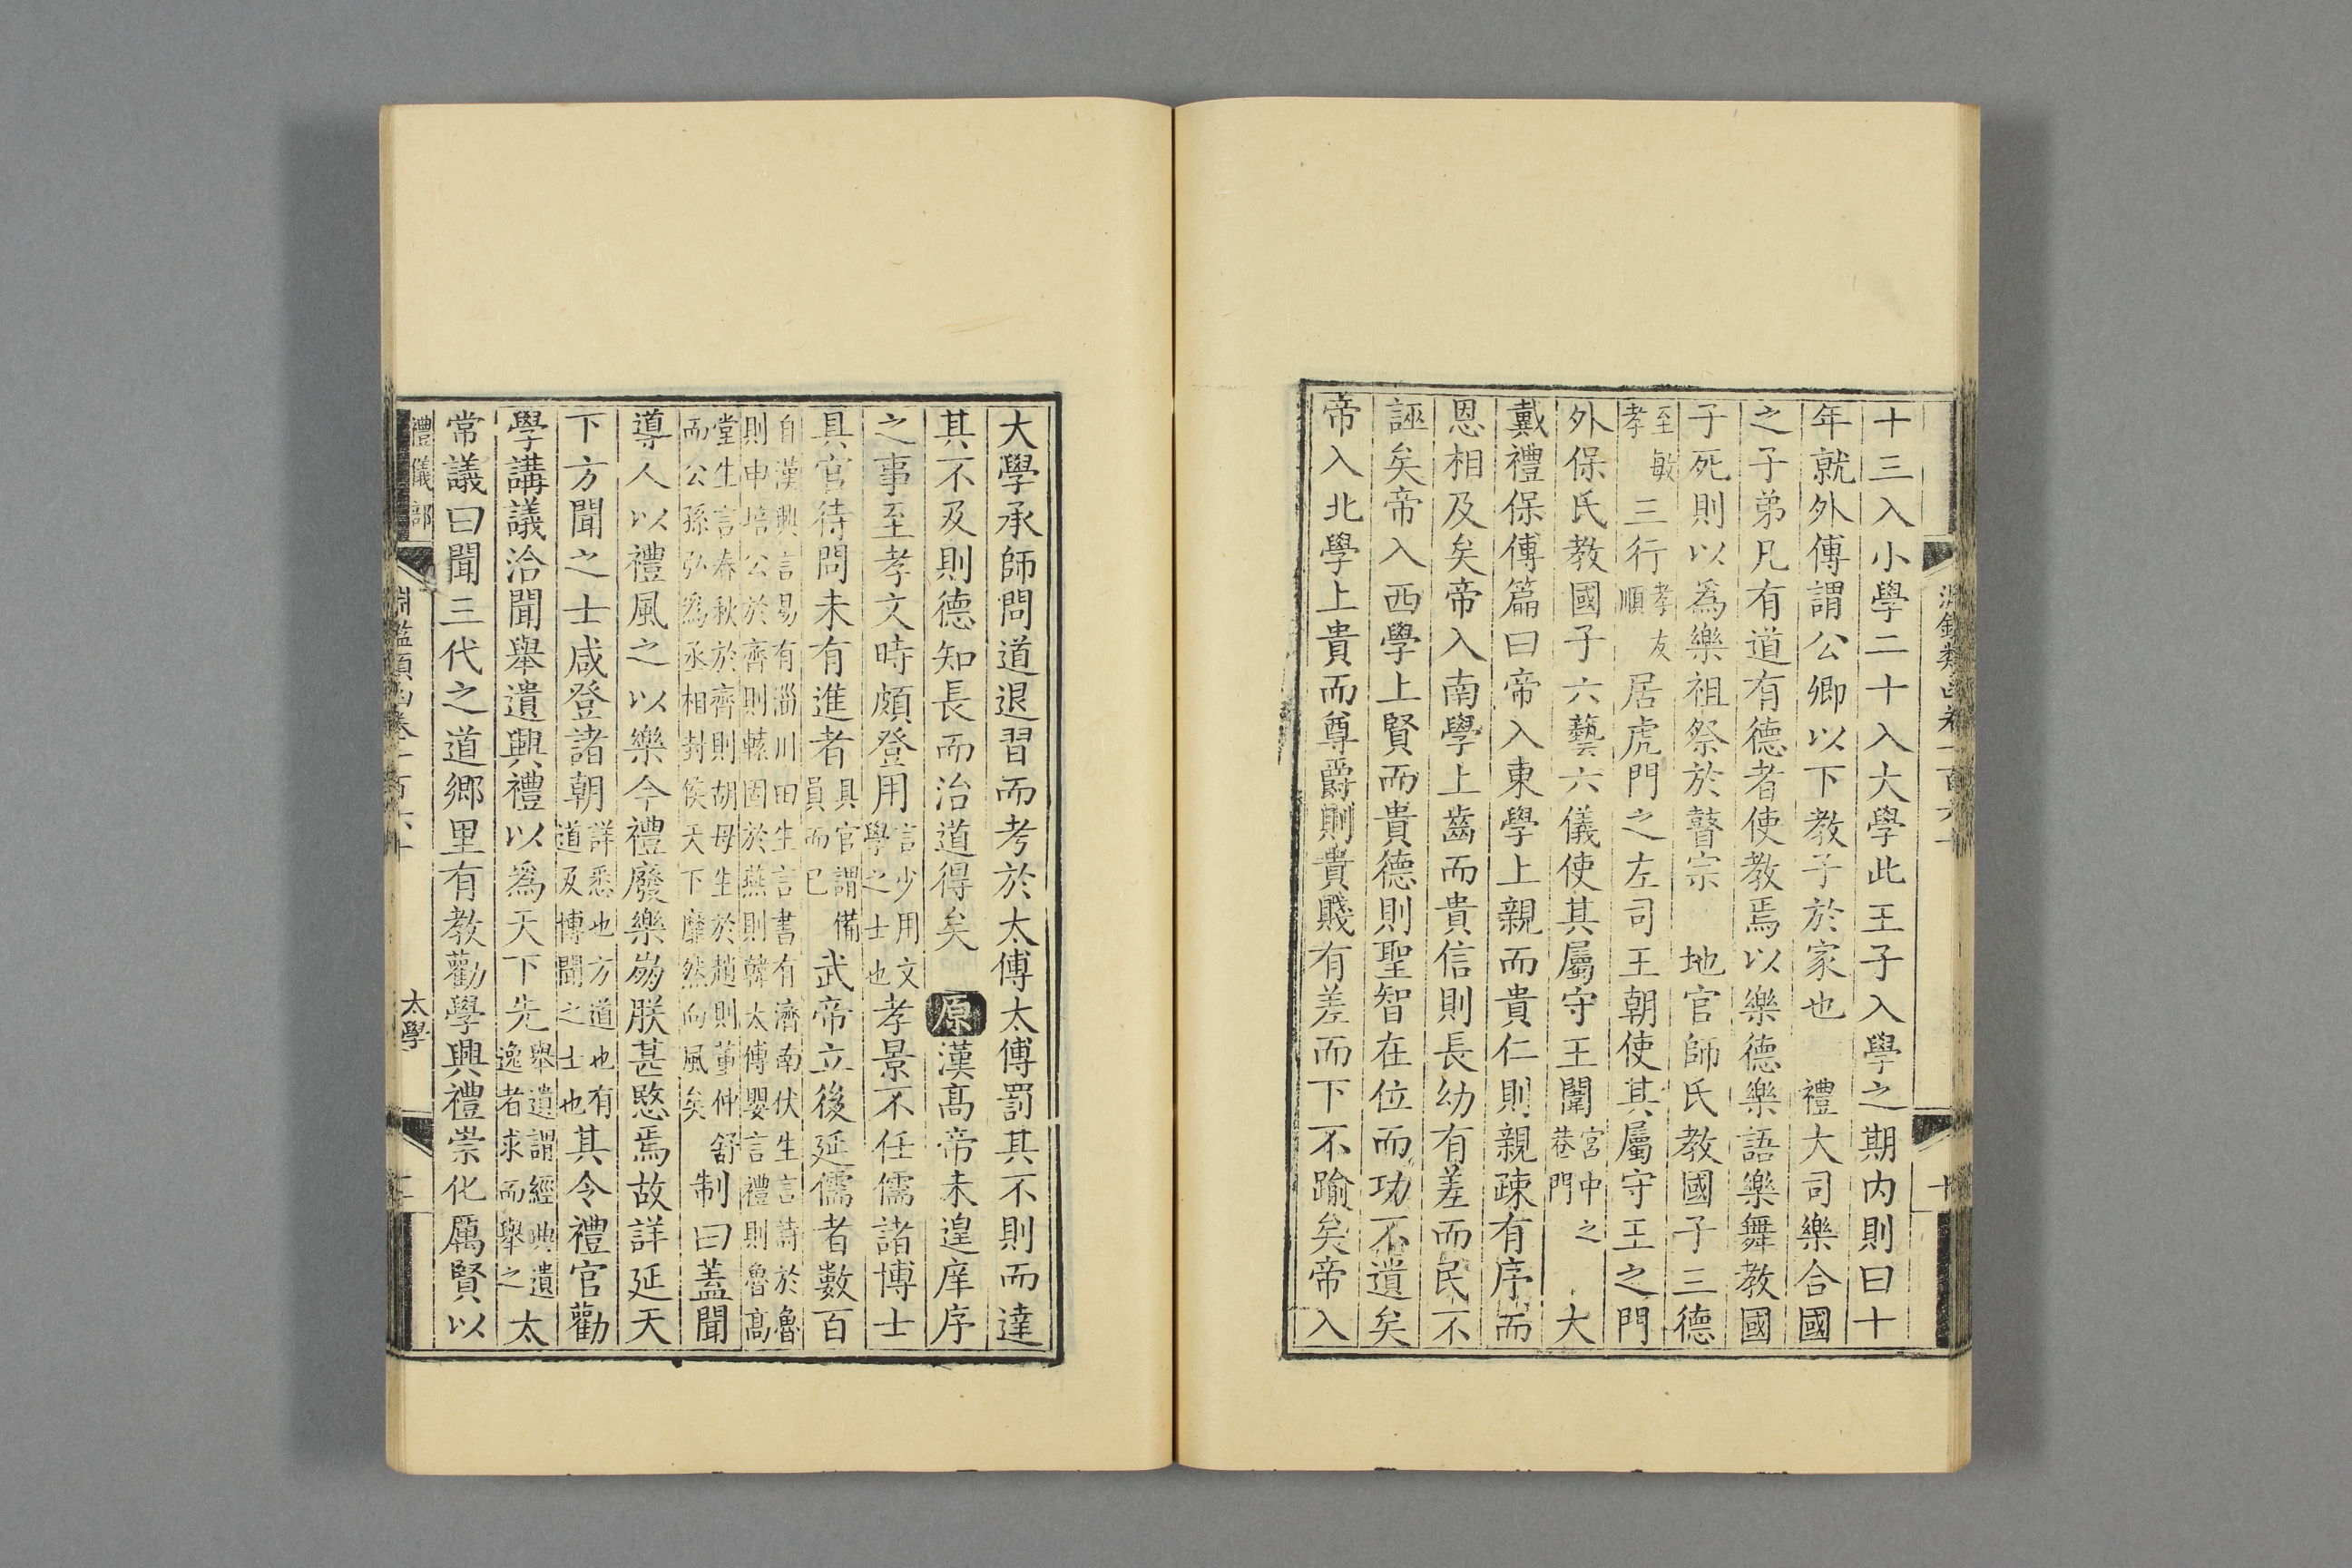 十三入小學二十入大學此王子入學之期内則曰十
年就外傅謂公卿以下教子於家也 禮大司樂合國
之子弟凡有道有德者使教焉以樂德樂語樂舞教國
子死則以爲樂祖祭於瞽宗 地官師氏教國子三德
至敏孝三行孝友順居虎門之左司王朝使其屬守王之門
外保氏教國子六藝六儀使其屬守王闈宮中之巷門 大
戴禮保傅篇曰帝入東學上親而貴仁則親疎有序而
恩相及矣帝入南學上齒而貴信則長幼有差而民不
誣矣帝入西學上賢而貴德則聖智在位而功不遺矣
帝入北學上貴而尊爵則貴賤有差而下不踰矣帝入
大學承師問道退習而考於太傅太傅罰其不則而達
其不及則德知長而治道得矣 原 漢高帝未遑庠序
之事至孝文時頗登用言少用文學之士也孝景不任儒諸博士
具官待問未有進者具官謂備員而已武帝立後延儒者數百
自漢興言易有淄川田生言書有濟南伏生言詩於魯
則申培公於齊則轅固於燕則韓太傅嬰言禮則魯高
堂生言春秋於齊則胡母生於趙則董仲舒
而公孫弘爲丞相封侯天下靡然向風矣
制曰蓋聞
導人以禮風之以樂今禮廢樂崩朕甚愍焉故詳延天
下方聞之士咸登諸朝詳悉也方道也有道及博聞之士也其令禮官勸
學講議洽聞舉遺興禮以爲天下先舉遺謂經典遺逸者求而舉之太
常議曰聞三代之道鄉里有教勸學興禮崇化厲賢以
禮儀部
淵鑑類函卷一百六十
太學